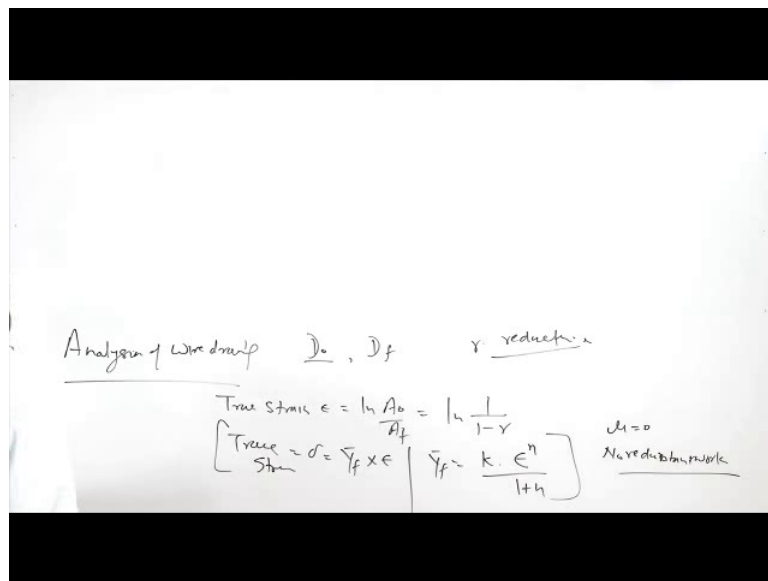 Analysis of wire drawing D₀, D_f r reduction
True strain ε = ln A₀/A_f = ln 1/(1-r)
[True Stress = σ = Ȳ_f × ε | Ȳ_f = K. εⁿ/(1+n)] μ=0
No redundant work